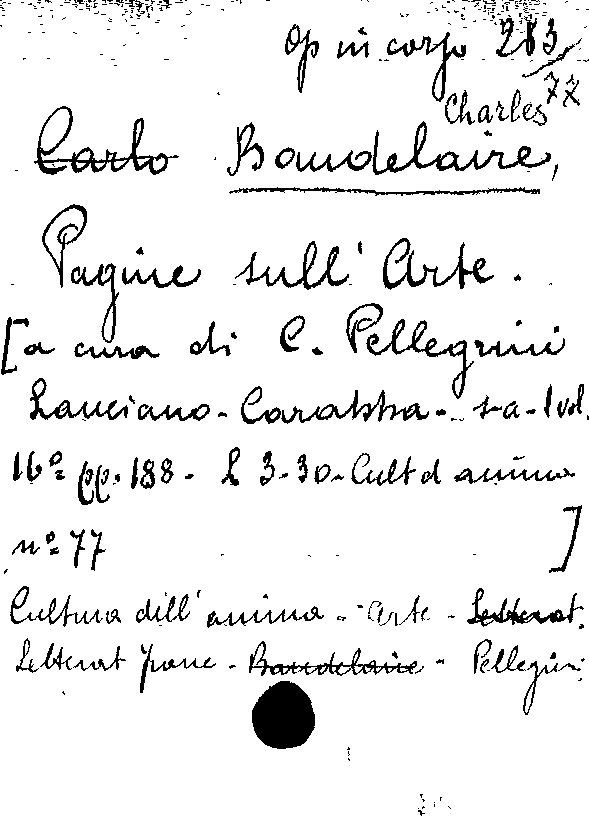 Op in corso 283/
77
Charles
Carlo Baudelaire,
Pagine sull' Arte.
[a cura di C. Pellegrini
Lanciano - Carabba - s-a - 1 vol.
16º pp. 188 - L 3.30 - Cult d anima
nº 77 ]
Cultura dell' anima - Arte - Letterat.
Letterat franc - Baudelaire - Pellegrini